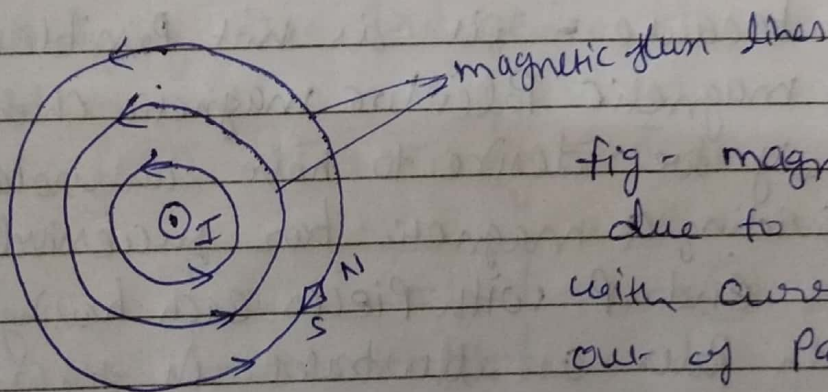 magnetic flux lines
fig - magn
due to
I
N
with curr
S
out of Pa